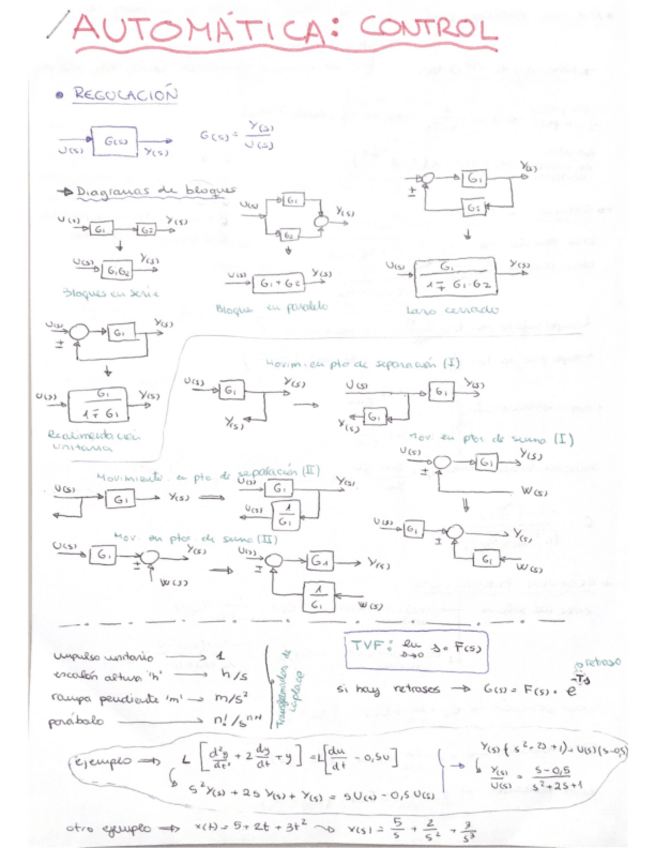 /AUTOMÁTICA: CONTROL
• REGULACIÓN
U(s) G(s) Y(s) G(s) = Y(s)/U(s)
→ Diagramas de bloques
U(s) G1 G2 Y(s)
U(s) G1G2 Y(s)
Bloques en serie
U(s) G1 G2 Y(s)
U(s) G1 + G2 Y(s)
Bloque en paralelo
± G1 Y(s) G2
U(s) G1 / 1∓ G1·G2 Y(s)
Lazo cerrado
U(s) ± G1 Y(s)
U(s) G1 / 1∓ G1 Y(s)
Realimentación
unitaria
Movim. en pto de separación (I)
U(s) G1 Y(s) Y(s) → U(s) G1 Y(s) G1 Y(s)
Mov en ptos de suma (I)
U(s) ± G1 Y(s) W(s)
U(s) G1 ± Y(s) G1 W(s)
Movimiento en pto de separación (II)
U(s) G1 Y(s) ⇒ U(s) G1 Y(s) U(s) 1/G1
Mov. en ptos de suma (II)
U(s) G1 ± Y(s) W(s) ⇒ U(s) ± G1 Y(s) 1/G1 W(s)
impulso unitario → 1
escalón altura 'h' → h/s
rampa pendiente 'm' → m/s²
parábola → n!/sⁿ⁺¹
Transformadas de Laplace
TVF: lim s→0 s· F(s)
si hay retrasos → G(s) = F(s) · e^-Ts
retraso
ejemplo ⇒ L [d²y/dt² + 2 dy/dt + y] = L[du/dt - 0,5u]
s² Y(s) + 2s Y(s) + Y(s) = sU(s) - 0,5 U(s)
Y(s)/U(s) = s-0,5 / s²+2s+1
otro ejemplo → x(t) = 5 + 2t + 3t² → x(s) = 5/s + 2/s² + 3/s³